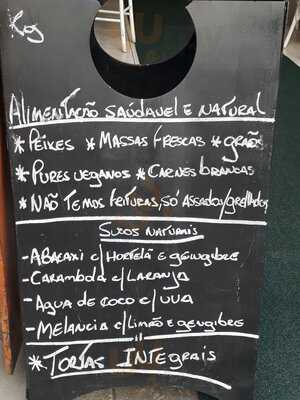 Alimentação saúdavel e natural
* Peixes * Massas frescas * grãos
* Pures veganos * Carnes brancas
* Não temos frituras, só assados/grelhados
Sucos naturais
- Abacaxi c/ Hortelã e gengibre
- Carambola c/ Laranja
- Agua de coco c/ uva
- Melancia c/ Limão e gengibre
* Tortas Integrais